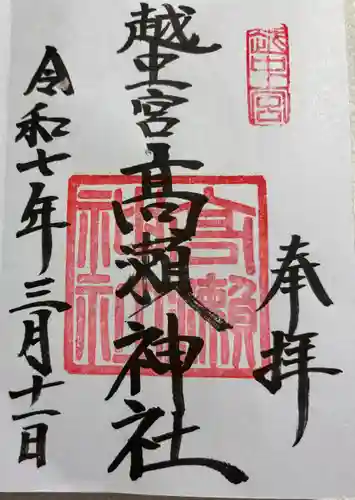 越中一宮
奉拝
越中一宮 高瀬神社
高瀬神社
令和七年三月十一日